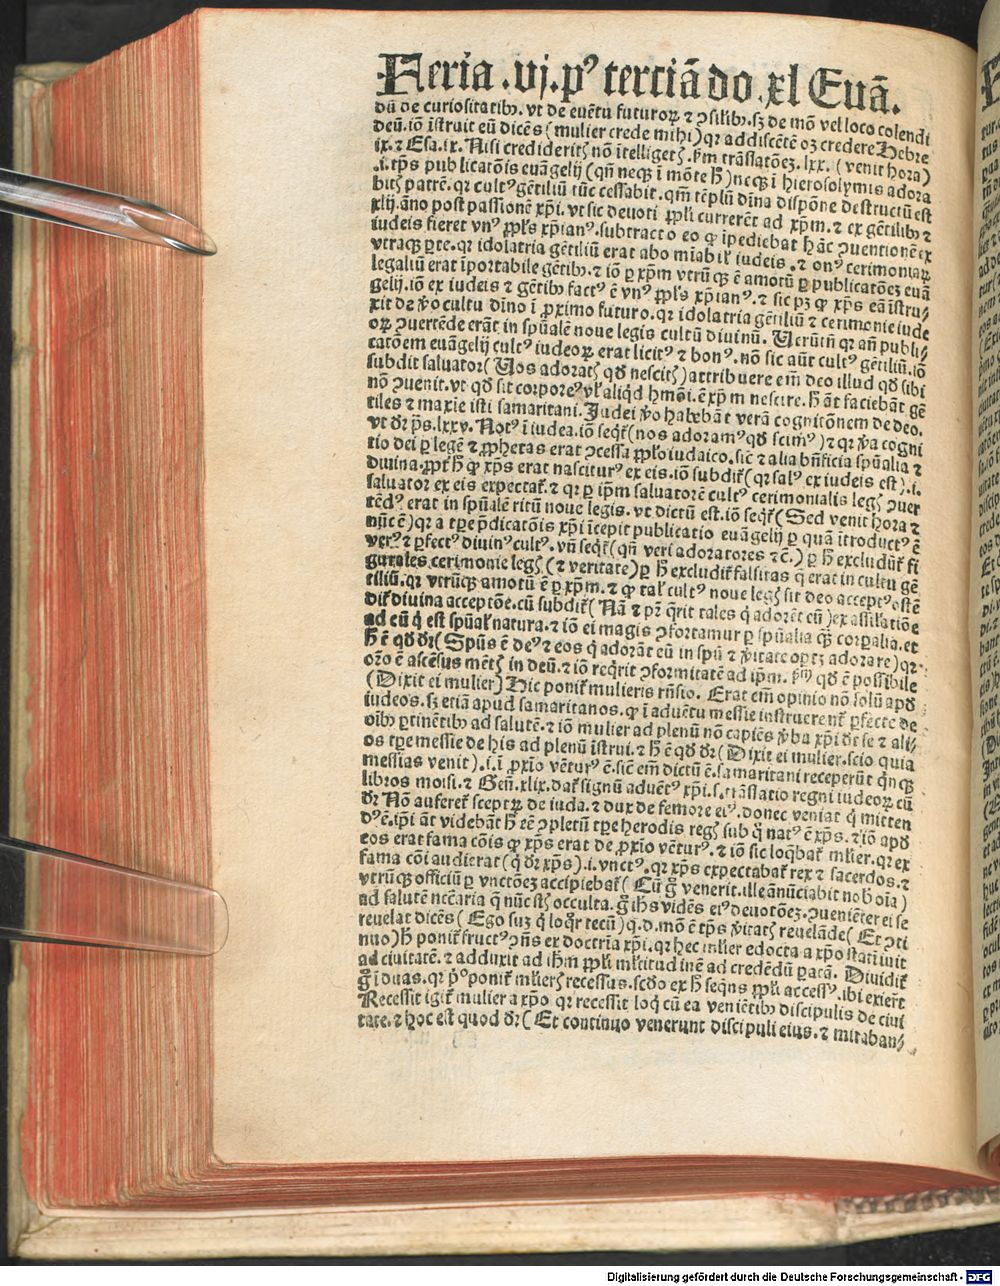 Feria .vj. pꝰ terciā do. xl Euā.
dū de curiositatibꝫ. vt de euētu futuroꝝ ⁊ ꝯsilibꝫ. sꝫ de mō vel loco colendi
deū. iō īstruit eū dicēs ( mulier crede mihi ) qꝛ addiscētē oꝫ credere Hebre
ix. ⁊ Esa. ix. Nisi credideritꝭ nō ītelligetꝭ. ẜm trāslatōeꝫ. lxx. ( venit hora )
.i. tp̄s publicatōis euāgelij ( qn̄ neqꝫ ī mōte h̄ ) neqꝫ ī hierosolymis adora
bitꝭ patrē. qꝛ cultꝰ gētiliū tūc cessabit. qm̄ tēplū dīna dispōne destructū est
xlij. āno post passionē xp̄i. vt sic deuoti pp̄li currerēt ad xp̄m. ⁊ ex gētilibꝫ ⁊
iudeis fieret vnꝰ pp̄ls xp̄ianꝰ. subtracto eo qꝫ īpediebat hāc ꝯuentionē ex
vtraqꝫ ꝑte. qꝛ idolatria gētiliū erat abominabil iudeis. ⁊ onꝰ cerimoniaꝝ
legaliū erat īportabile gētibꝫ. ⁊ iō ꝑ xp̄m vtrūqꝫ ē amotū ꝑ publicatōeꝫ euā
gelij. iō ex iudeis ⁊ gētibꝫ factꝰ ē vnꝰ pp̄ls xp̄ianꝰ. ⁊ sic pꝫ qꝫ xp̄s eā īstru/
xit de v̄o cultu dīno ī ꝓximo futuro. qꝛ idolatria gētiliū ⁊ cerimonie iude
oꝝ ꝯuertēde erāt in spūalē noue legis cultū diuinū. Uerūtn̄ qꝛ añ publi/
catōem euāgelij cultꝰ iudeoꝝ erat licitꝰ ⁊ bonꝰ. nō sic aūt cultꝰ gētiliū. iō
subdit saluator ( Uos adoratꝭ qd̄ nescitꝭ ) attribuere em̄ deo illud qd̄ sibi
nō ꝯuenit. vt qd̄ sit corporeꝰ vl' aliqd hmōi. ē xp̄m nescire. h̄ āt faciebāt gē
tiles ⁊ maxie isti samaritani. Judei v̄o habebāt verā cognitōnem de deo.
vt dr̄ ps. lxxv. Notꝰ ī iudea. iō seqr̄ ( nos adoramꝰ qd̄ scimꝰ ) ⁊ qꝛ v̄a cogni
tio dei ꝑ legē ⁊ ꝓphetas erat ꝯcessa pp̄lo iudaico. sic ⁊ alia bn̄ficia spūalia ⁊
diuina. ꝓpt̄ h̄ qꝫ xp̄s erat nasciturꝰ ex eis. iō subdit̄ ( qꝛ salꝰ ex iudeis est ) .i.
saluator ex eis expectat̄. ⁊ qꝛ ꝑ ip̄m saluatorē cultꝰ cerimonialis legꝭ ꝯuer
tēdꝰ erat in spūalē ritū noue legis. vt dictū est. iō seqr̄ ( Sed venit hora ⁊
nūc ē ) qꝛ a tꝑe p̄dicatōis xp̄i īcepit publicatio euāgelij ꝑ quā ītroductꝰ ē
verꝰ ⁊ ꝑfectꝰ diuinꝰ cultꝰ. vn̄ seqr̄ ( qn̄ veri adoratores ⁊ c̄. ) ꝑ h̄ excludūt̄ fi
gurales cerimonie legꝭ ( ⁊ veritate ) ꝑ h̄ excludit̄ falsitas q̄ erat in cultu gē
tiliū. qꝛ vtrūqꝫ amotū ē ꝑ xp̄m. ⁊ qꝫ tal' cultꝰ noue legꝭ sit deo acceptꝰ ostē
dit̄ diuina acceptōe. cū subdit̄ ( Nā ⁊ pr̄ q̄rit tales q̇ adorēt eū ) ex assilatiōe
ad eū q̇ est spūal' natura. ⁊ iō ei magis ꝯfortamur ꝑ spūalia qꝫ corꝑalia. et
h̄ ē qd̄ dr̄ ( Spūs ē deꝰ ⁊ eos q̇ adorāt eū in spū ⁊ v̄itate oportꝫ adorare ) qꝛ
orō ē ascēsus mētꝭ in deū. ⁊ iō reqrit ꝯformitatē ad ip̄m. ẜm qd̄ ē possibile
( Dixit ei mulier ) Hic ponit̄ mulieris rn̄sio. Erat em̄ opinio nō solū apd̄
iudeos. sꝫ etiā apud samaritanos. qꝫ ī aduētu messie instruerent̄ ꝑfecte de
oibꝫ ꝑtinētibꝫ ad salutē. ⁊ iō mulier ad plenū nō capiēs v̄ba xp̄i dt̄ se ⁊ ali/
os tꝑe messie de his ad plenū īstrui. ⁊ h̄ ē qd̄ dr̄ ( Dixit ei mulier. scio quia
messias venit ) .i. ī ꝓxio vēturꝰ ē. sic em̄ dictū ē. samaritani receperūt qnqꝫ
libros moisi. ⁊ Geñ. xlix. dat̄ signū aduētꝰ xp̄i. s. trāslatio regni iudeoꝝ cū
dr̄ Nō auferet̄ sceptꝝ de iuda. ⁊ dux de femore eiꝰ. donec veniat q̇ mitten
dꝰ ē. ip̄i āt videbāt h̄ eē ꝯpletū tꝑe herodis regꝭ sub q̇ natꝰ ē xp̄s. ⁊ iō apd̄
eos erat fama cōis qꝫ xp̄s erat de ꝓxio vēturꝰ. ⁊ iō sic loqbat̄ mlier. qꝛ ex
fama cōi audierat ( q̇ dr̄ xp̄s ) .i. vnctꝰ. qꝛ xp̄s expectabat̄ rex ⁊ sacerdos. ⁊
vtrūqꝫ officiū ꝑ vnctōeꝫ accipiebat̄ ( Cū g̊ venerit. ille ānūciabit nob oīa )
ad salutē necēaria q̄ nūc st̄ occulta. g̊ ih̄s vidēs eiꝰ deuotōeꝫ. ꝯueniēter ei se
reuelat dicēs ( Ego suꝫ q̇ loqr̄ tecū ) q. d. mō ē tp̄s v̄itatꝭ reuelāde ( Et ꝯti
nuo ) h̄ ponit̄ fructꝰ ꝯn̄s ex doctrīa xp̄i. qꝛ hec mlier edocta a xp̄o statī iuit
ad ciuitatē. ⁊ adduxit ad ih̄m pp̄li ml̄titudinē ad credēdū parā. Diuidit̄
g̊ ī duas. qꝛ p̄ͦ ponit̄ mlierꝭ recessus. scdo ex h̄ seqns pp̄li accessꝰ. ibi exier̄t
Recessit igit̄ mulier a xp̄o qꝛ recessit loq̇ cū ea veniētibꝫ discipulis de ciui
tate. ⁊ hoc est quod dr̄ ( Et continuo venerunt discipuli eius. ⁊ mirabanꝭ
Digitalisierung gefördert durch die Deutsche Forschungsgemeinschaft - DFG